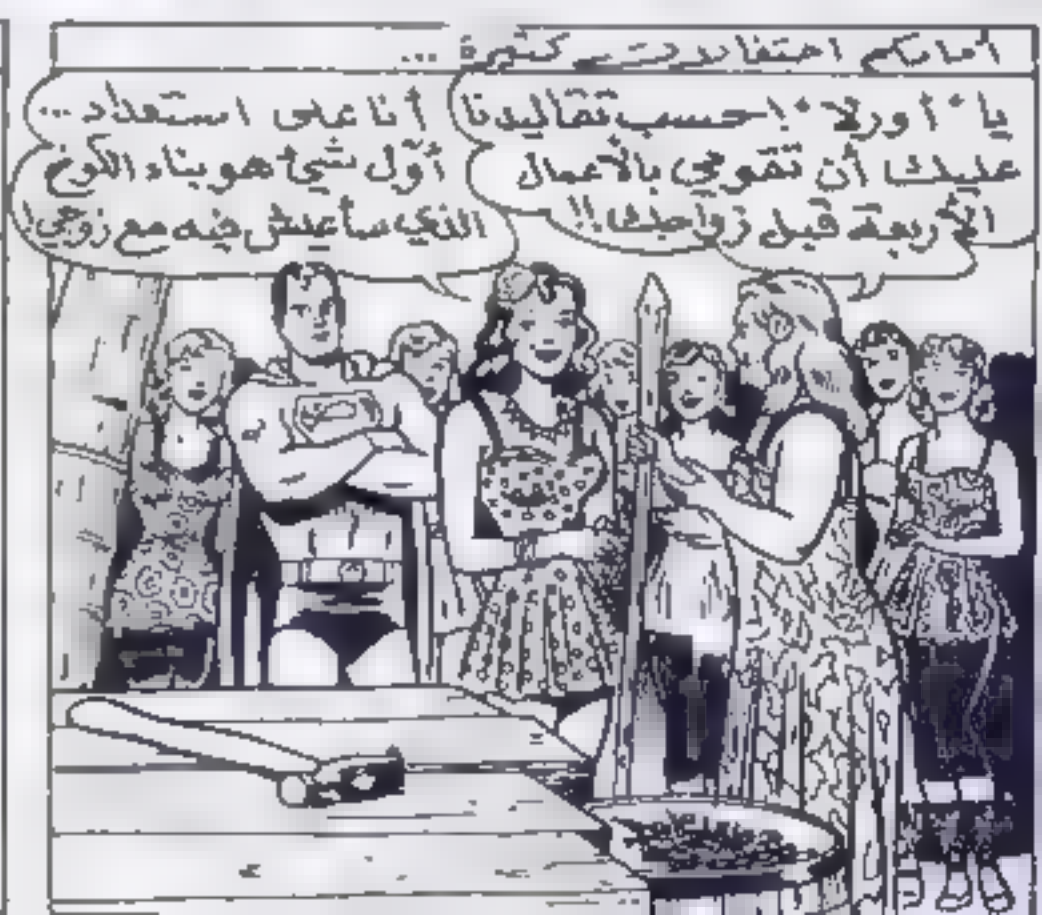 أمامكم احتفالات كثيرة ...
يا "أورلا"! حسب تقاليدنا
عليك أن تقومي بالأعمال
الأربعة قبل زواجك!!
أنا على استعداد...
أوّل شيء هو بناء الكوخ
الذي سأعيش فيه مع زوجي!